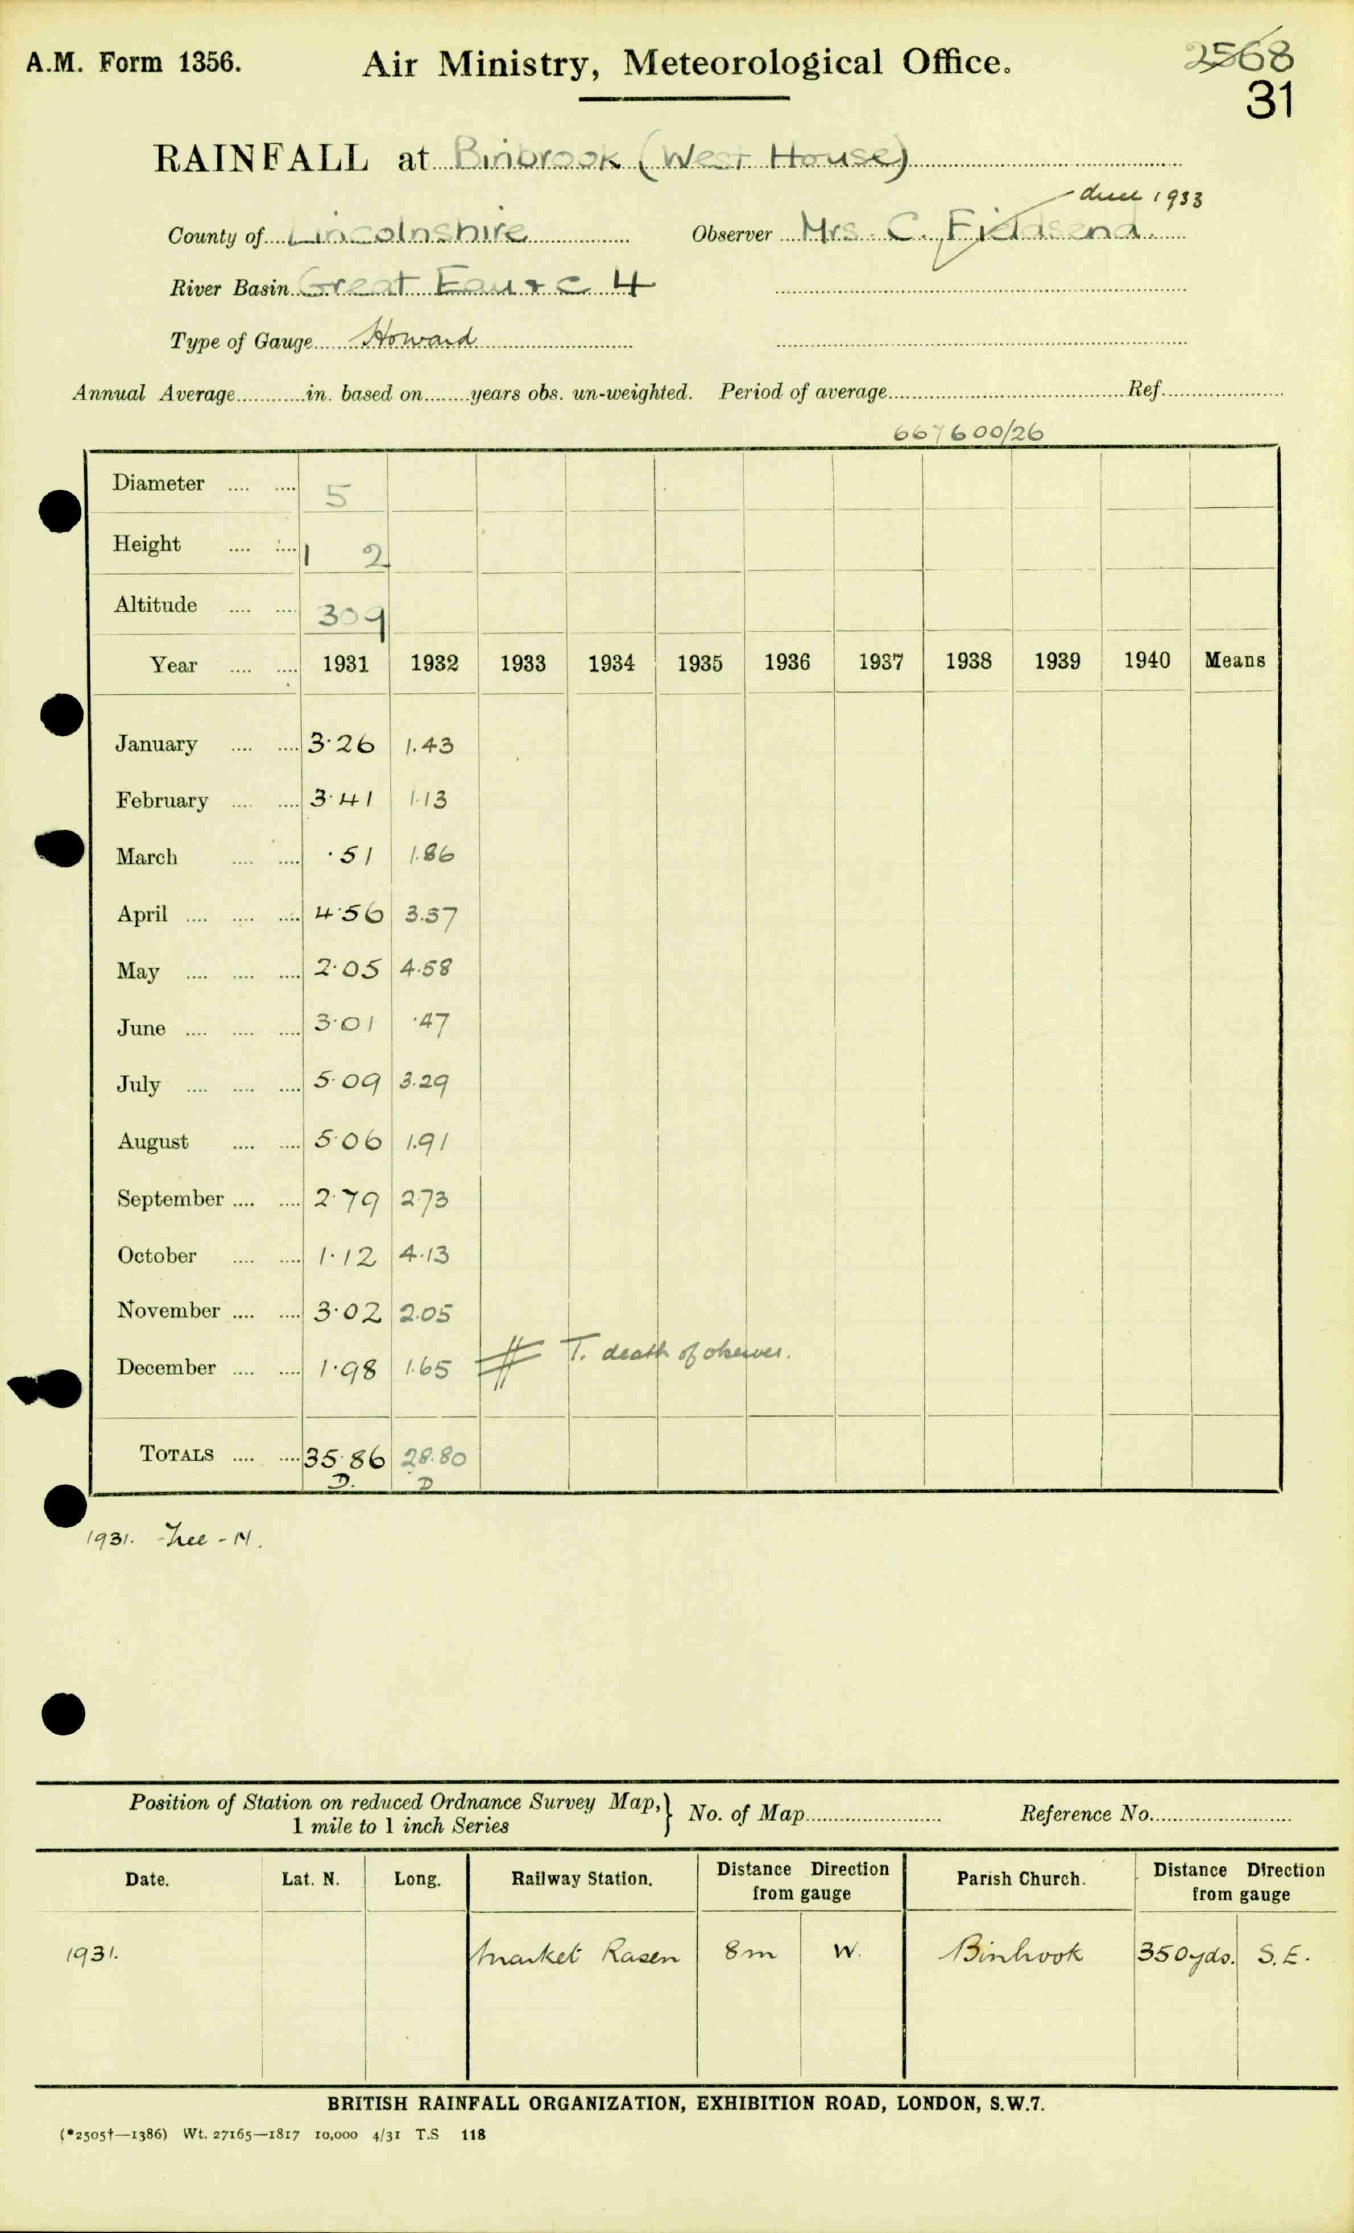 A.M. Form 1356.
Air Ministry, Meteorological Office.
2568
31
RAINFALL at Binbrook (West House)
died 1933
County of Lincolnshire Observer Mrs. C. Fieldsend.
River Basin Great Eau & c 4
Type of Gauge Howard
Annual Average............in. based on........years obs. un-weighted. Period of average.................... Ref...............
667600/26
Diameter .... .... 5
Height .... .... 1 2
Altitude .... .... 309
Year .... .... 1931 1932 1933 1934 1935 1936 1937 1938 1939 1940 Means
January .... .... 3·26 1.43
February .... .... 3·41 1·13
March .... .... ·51 1.86
April .... .... .... 4·56 3.57
May .... .... .... 2·05 4.58
June .... .... .... 3·01 ·47
July .... .... .... 5·09 3.29
August .... .... 5·06 1.91
September .... .... 2·79 2.73
October .... .... 1·12 4.13
November .... .... 3·02 2.05
December .... .... 1·98 1.65 T. death of observer.
TOTALS .... .... 35·86 28.80
D. D
1931.
Position of Station on reduced Ordnance Survey Map, } No. of Map.................... Reference No....................
1 mile to 1 inch Series
Date. Lat. N. Long. Railway Station. Distance Direction from gauge Parish Church. Distance Direction from gauge
1931. Market Rasen 8m W. Binbrook 350yds. S.E.
BRITISH RAINFALL ORGANIZATION, EXHIBITION ROAD, LONDON, S.W.7.
(*2505†—1386) Wt. 27165—1817 10,000 4/31 T.S 118